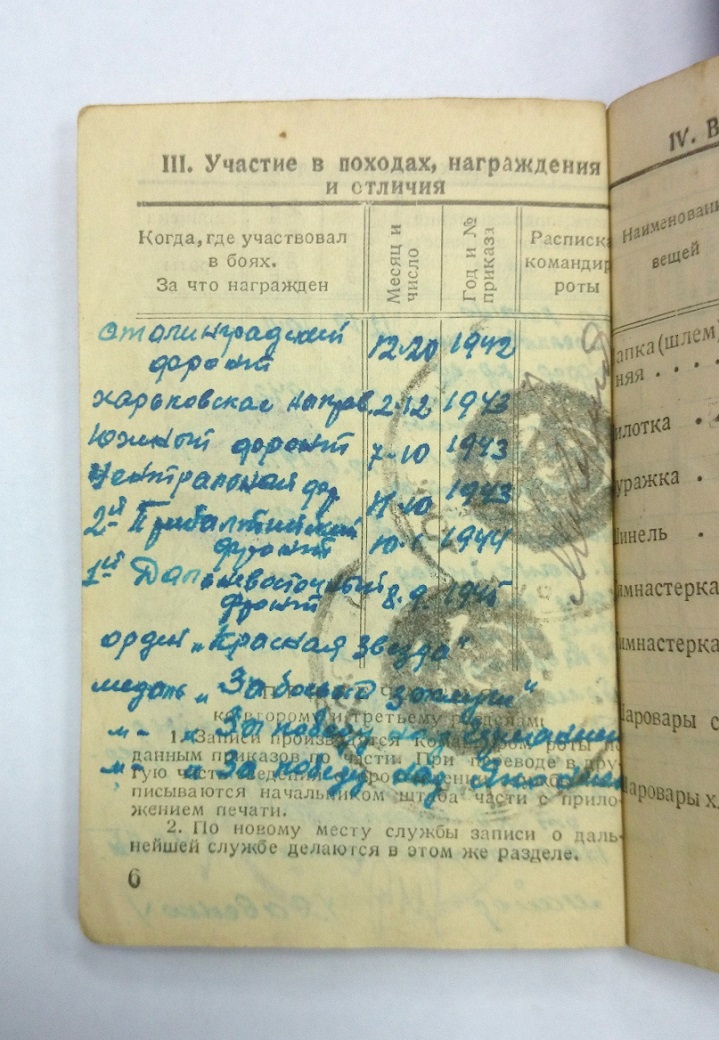 III. Участие в походах, награждения
и отличия
Когда, где участвовал
в боях.
За что награжден
Месяц и
число
Год и №
приказа
Расписка
командир
роты
Сталинградский
фронт
12-20 1942
харьковское направ. 2-12 1943
Южный фронт 7-10 1943
Центральная фр 11.10 1943
2-й Прибалтийский
фронт 10.5 1944
1-й Дальневосточный
фронт 8.9. 1945
орден „Красная Звезда“
медаль „За боевые заслуги“
м- „ За победу над Германией
м- „ За победу над Японией
ко второму и третьему разделам
1. Записи производятся командиром роты по
данным приказов по части. При переводе в дру-
гую часть
писываются начальником штаба части с прило-
жением печати.
2. По новому месту службы записи о даль-
нейшей службе делаются в этом же разделе.
6
IV. В
Наименовани
вещей
апка (шлем)
няя
илотка
уражка
инель
имнастерка
имнастерка
аровары с
аровары х